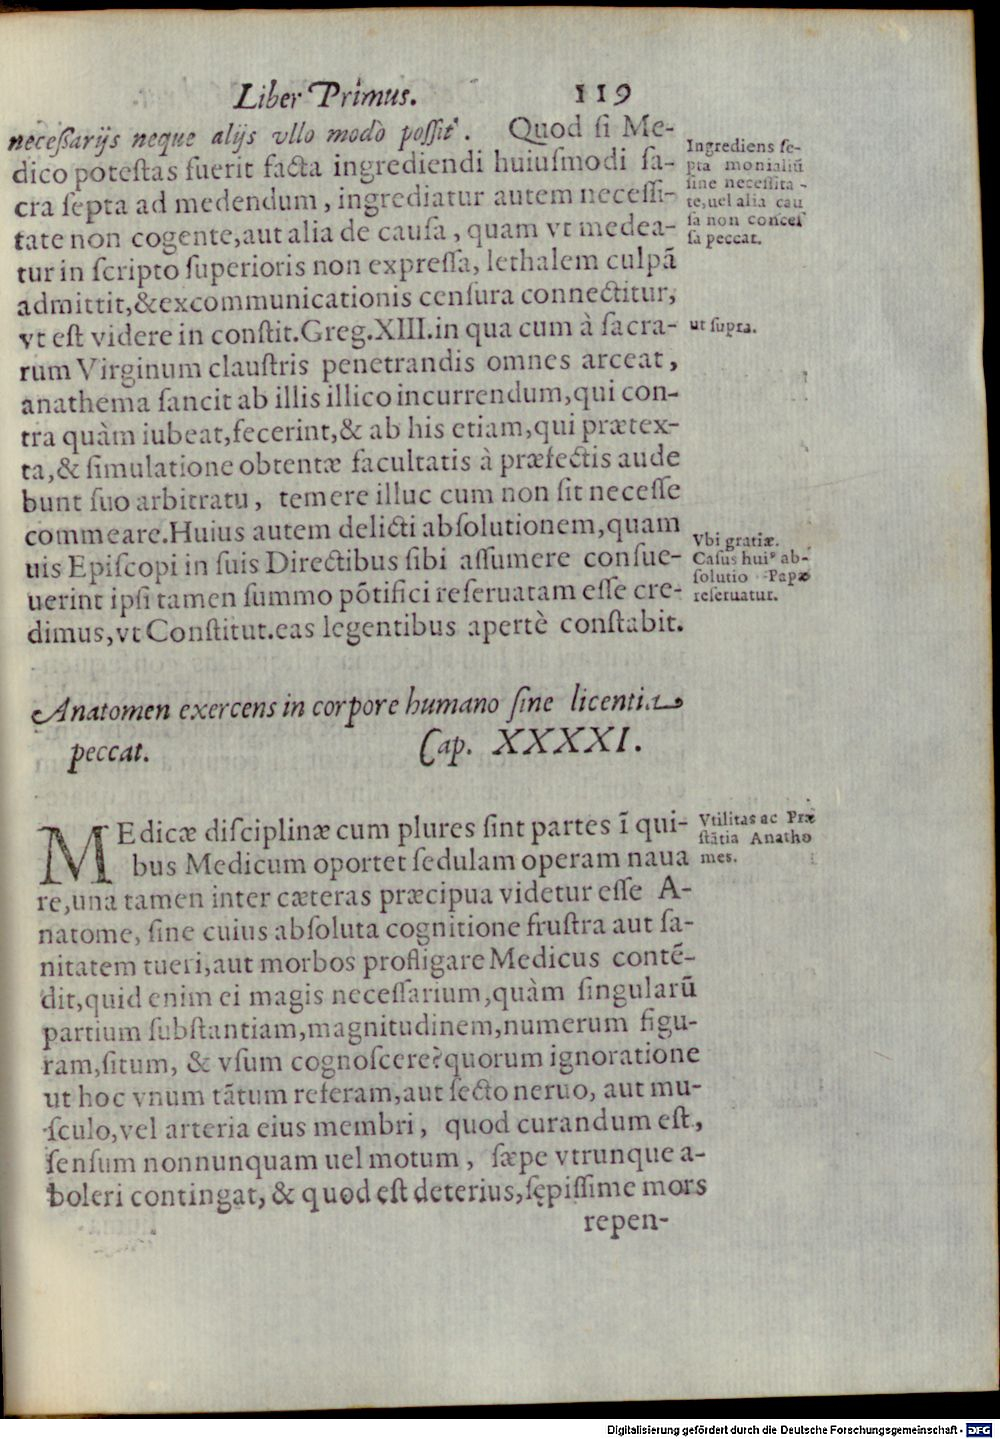 Liber Primus. 119
neceßarijs neque alijs vllo modo poſſit. Quod ſi Me-
dico poteſtas fuerit facta ingrediendi huiuſmodi ſa-
cra ſepta ad medendum, ingrediatur autem neceſſi-
tate non cogente, aut alia de cauſa, quam vt medea-
tur in ſcripto ſuperioris non expreſſa, lethalem culpã
admittit, & excommunicationis cenſura connectitur,
vt eſt videre in conſtit. Greg. XIII. in qua cum à ſacra-
rum Virginum clauſtris penetrandis omnes arceat,
anathema ſancit ab illis illico incurrendum, qui con-
tra quàm iubeat, fecerint, & ab his etiam, qui prætex-
ta, & ſimulatione obtentæ facultatis à præfectis aude
bunt ſuo arbitratu, temere illuc cum non ſit neceſſe
commeare. Huius autem delicti abſolutionem, quam
uis Epiſcopi in ſuis Directibus ſibi aſſumere conſue-
uerint ipſi tamen ſummo põtifici reſeruatam eſſe cre-
dimus, vt Conſtitut. eas legentibus apertè conſtabit.
Ingrediens ſe-
pta monialiũ
ſine neceſſita-
te, uel alia cau
ſa non conceſ
ſa peccat.
ut ſupra.
Vbi gratiæ.
Caſus huiꝰ ab-
ſolutio Papæ
reſeruatur.
Anatomen exercens in corpore humano ſine licentia
peccat. Cap. XXXXI.
MEdicæ diſciplinæ cum plures ſint partes ĩ qui-
bus Medicum oportet ſedulam operam naua
re, una tamen inter cæteras præcipua videtur eſſe A-
natome, ſine cuius abſoluta cognitione fruſtra aut ſa-
nitatem tueri, aut morbos profligare Medicus contẽ-
dit, quid enim ei magis neceſſarium, quàm ſingularũ
partium ſubſtantiam, magnitudinem, numerum figu-
ram, ſitum, & vſum cognoſcere? quorum ignoratione
ut hoc vnum tãtum referam, aut ſecto neruo, aut mu-
ſculo, vel arteria eius membri, quod curandum eſt,
ſenſum nonnunquam uel motum, ſæpe vtrunque a-
boleri contingat, & quod eſt deterius, ſępiſſime mors
repen-
Vtilitas ac Præ
ſtãtia Anatho
mes.
Digitalisierung gefördert durch die Deutsche Forschungsgemeinschaft - DFG